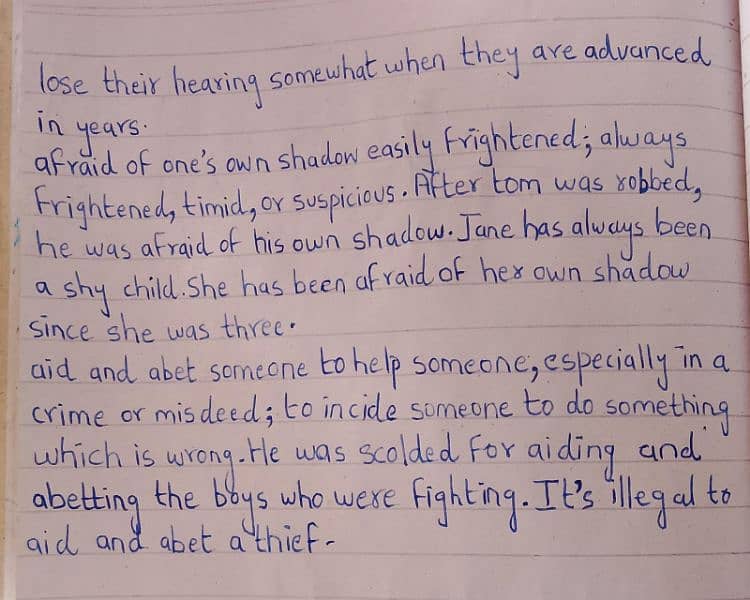 lose their hearing somewhat when they are advanced
in years.
afraid of one's own shadow easily frightened; always
frightened, timid, or suspicious. After tom was robbed,
he was afraid of his own shadow. Jane has always been
a shy child. She has been afraid of her own shadow
since she was three.
aid and abet someone to help someone, especially in a
crime or misdeed; to incide someone to do something
which is wrong. He was scolded for aiding and
abetting the boys who were fighting. It's illegal to
aid and abet a thief.